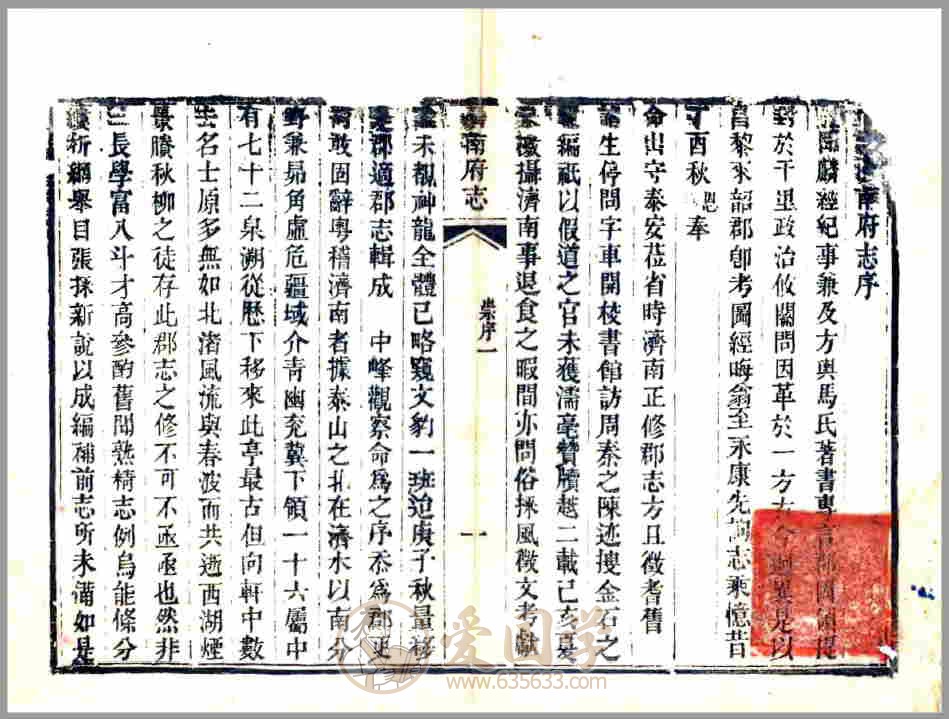 南府志序
麟經紀事兼及方輿馬氏著書專言郡國須提
於千里政治攸關問因革於一方古今見以
昌黎來韶郡卽考圖經晦翁至永康先詢志乘憶昔
丁酉秋恩奉
命出守泰安莅省時濟南正修郡志方且徵耆舊
生停問字車開校書館訪周秦之陳迹搜金石之
編祇以假道之官未獲濡毫贊牘越二載己亥夏
攝濟南事退食之暇間亦問俗採風徵文考獻
未覩神龍全體已略窺文豹一班迨庚子秋量移
郡適郡志輯成 中峰觀察命爲之序忝爲郡吏
敢固辭粤稽濟南者據泰山之北在濟水以南分
野兼昴角虛危疆域介靑幽兗冀下領一十六屬中
有七十二泉溯從歷下移來此亭最古但向軒中數
名士原多無如北渚風流與春波而共逝西湖煙
景賸秋柳之徒存此郡志之修不可不亟亟也然非
三長學富八斗才高參酌舊聞熟精志例烏能條分
析綱舉目張採新說以成編補前志所未備如是
南府志
崇序一
一
爱国学
www.635633.com